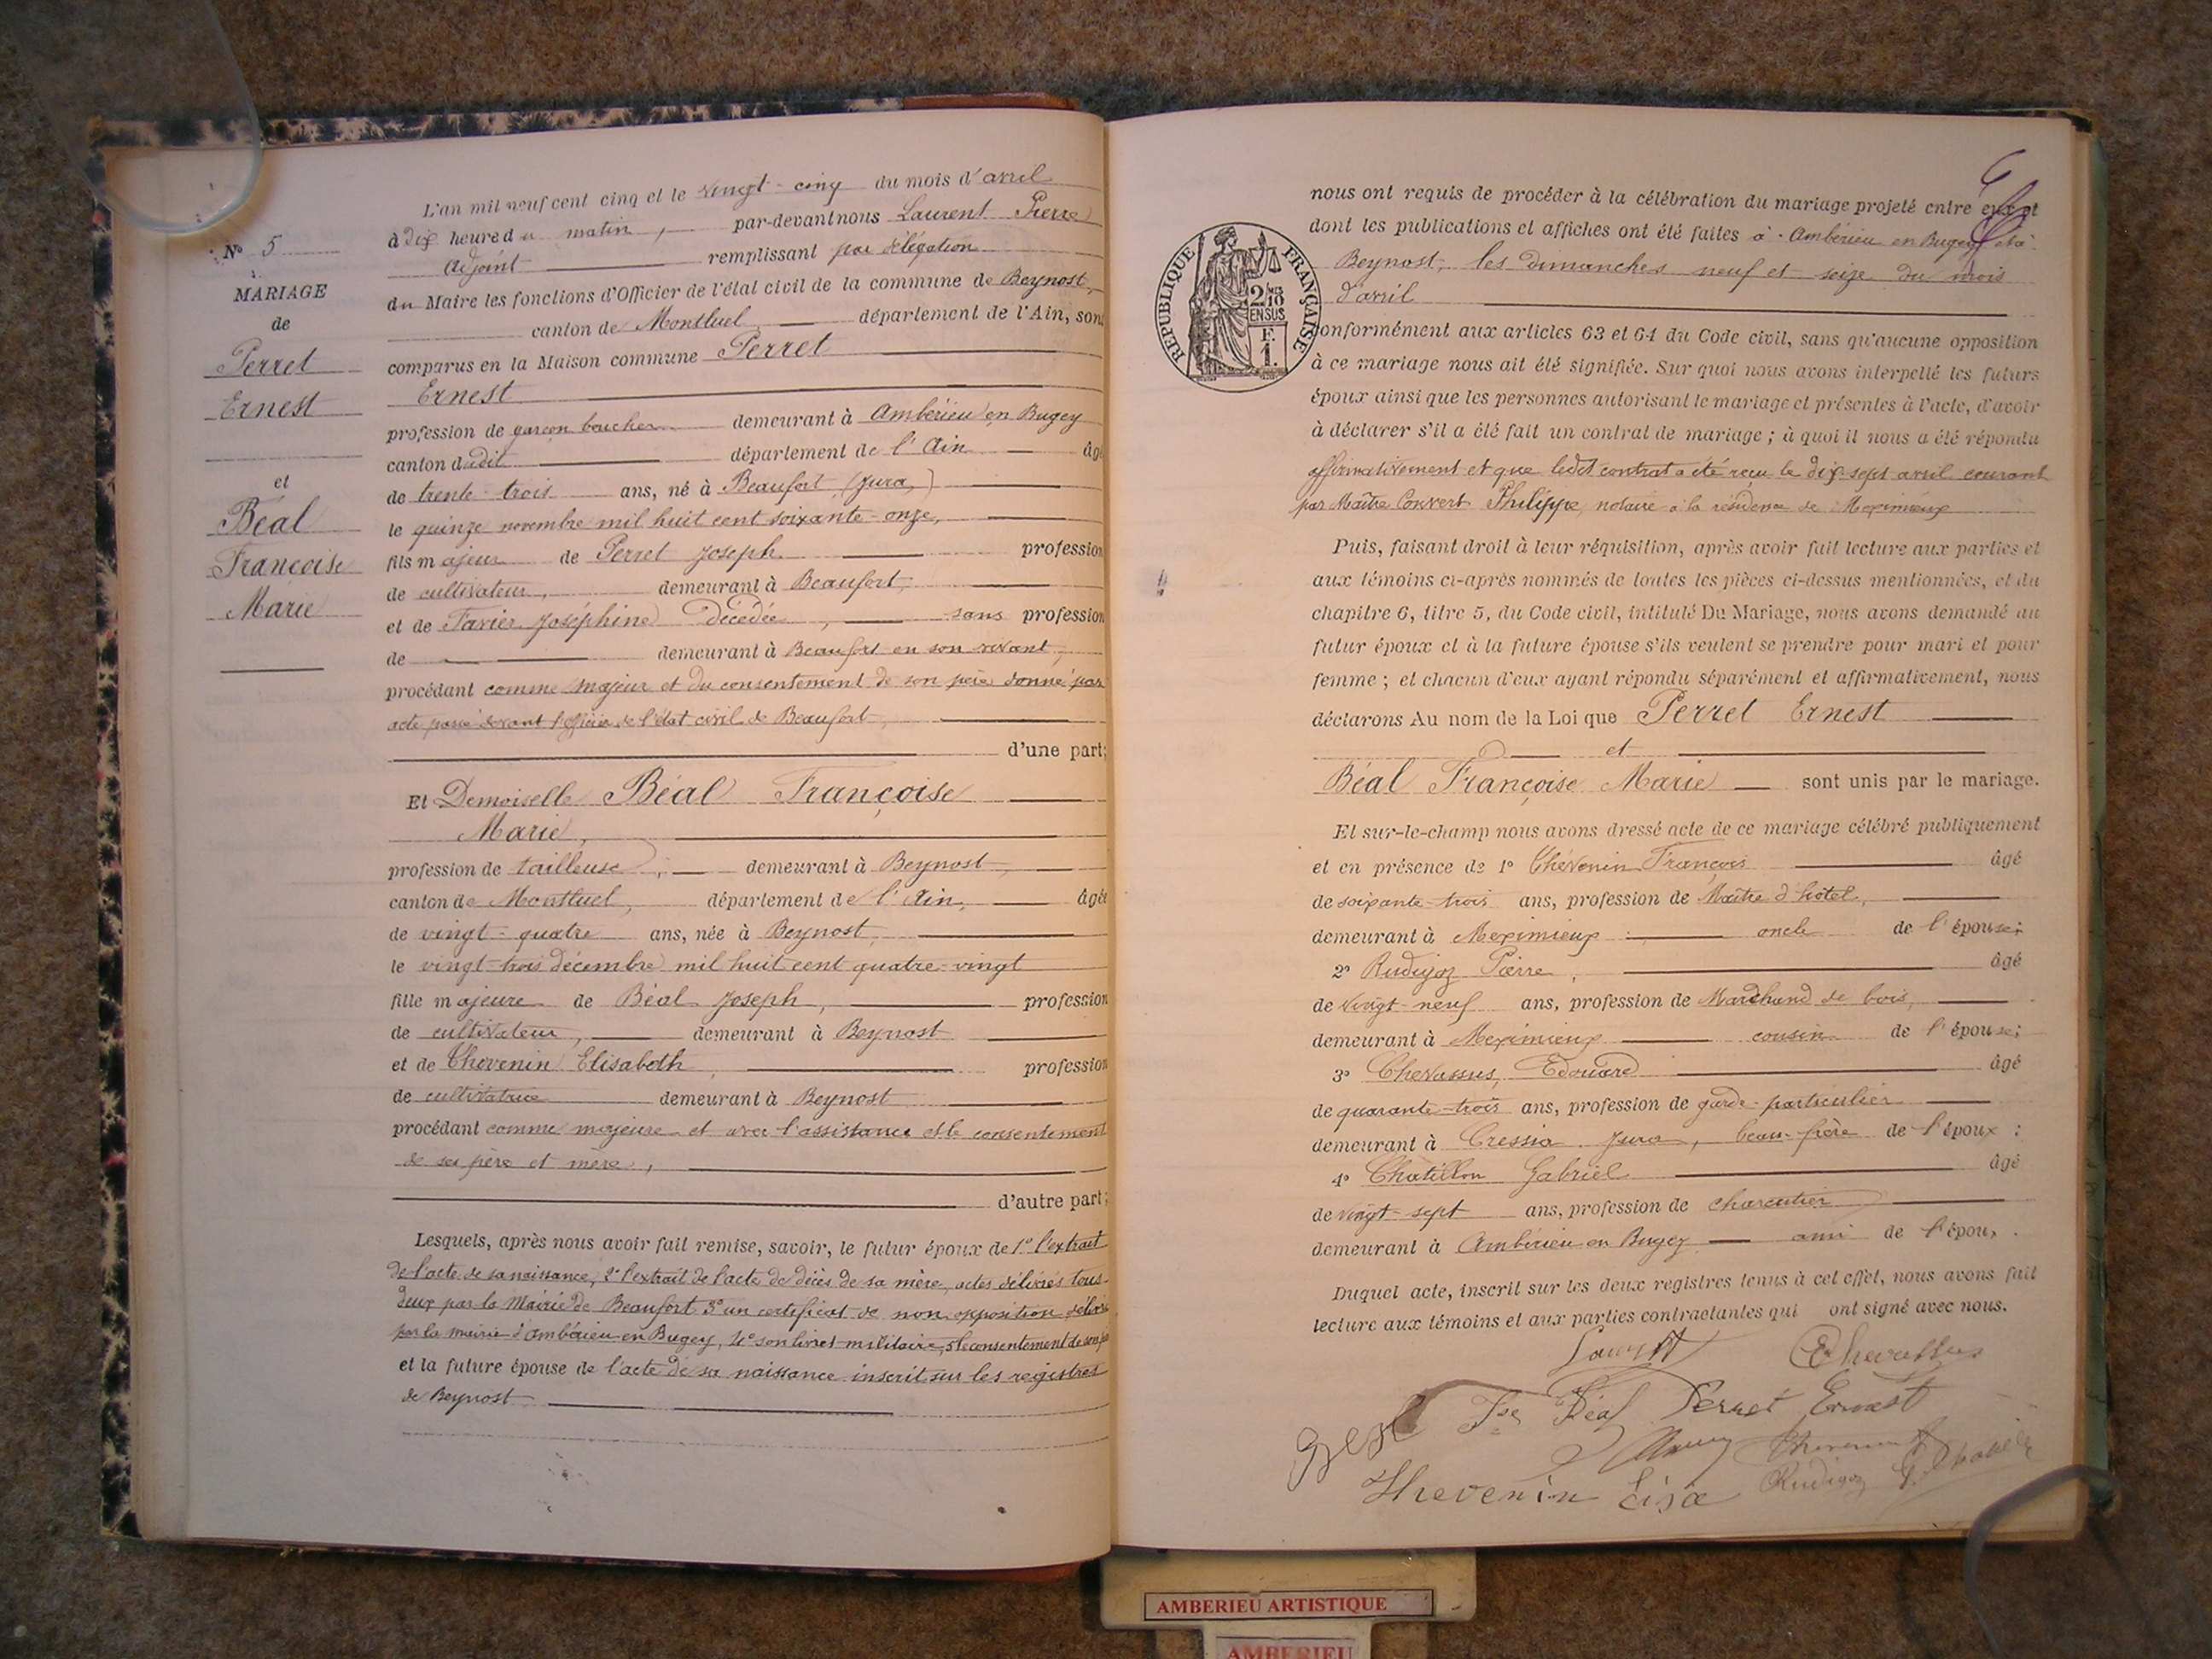 N° 5
MARIAGE
de
Perret
Ernest
et
Béal
Françoise
Marie
L'an mil neuf cent cinq et le vingt-cinq du mois d'avril
à dix heure du matin, par-devant nous Laurent Pierre
Adjoint remplissant par délégation
du Maire les fonctions d'Officier de l'état civil de la commune de Beynost,
canton de Montluel département de l'Ain, son
comparus en la Maison commune Perret
Ernest
profession de garçon boucher demeurant à Ambérieu en Bugey
canton dudit département de l'Ain âg
de trente-trois ans, né à Beaufort (Jura,)
le quinze novembre mil huit cent soixante-onze,
fils majeur de Perret Joseph profession
de cultivateur, demeurant à Beaufort,
et de Tavier Joséphine Décédée, sans profession
de demeurant à Beaufort en son vivant,
procédant comme majeur et du consentement de son père donné par
acte passé devant l'officier de l'état civil de Beaufort,
d'une part;
Et Demoiselle Béal Françoise
Marie,
profession de tailleuse, demeurant à Beynost,
canton de Montluel, département de l'Ain, âgé
de vingt-quatre ans, née à Beynost,
le vingt-trois décembre mil huit cent quatre-vingt
fille majeure de Béal Joseph, profession
de cultivateur, demeurant à Beynost
et de Thévenin Elisabeth, profession
de cultivatrice demeurant à Beynost
procédant comme majeure et avec l'assistance et le consentement
de ses père et mère,
d'autre part;
Lesquels, après nous avoir fait remise, savoir, le futur époux de 1° l'extrait
de l'acte de sa naissance, 2° l'extrait de l'acte de décès de sa mère, actes délivrés tous
deux par la Mairie de Beaufort 3° un certificat de non opposition délivré
par la mairie d'Ambérieu en Bugey, 4° son livret militaire, 5° le consentement de son père
et la future épouse de l'acte de sa naissance inscrit sur les registres
de Beynost
REPUBLIQUE FRANÇAISE
2/10
EN SUS
F.
1.
nous ont requis de procéder à la célébration du mariage projeté entre eux et
dont les publications et affiches ont été faites à Ambérieu en Bugey et à
Beynost, les dimanches neuf et seize du mois
d'avril
conformément aux articles 63 et 64 du Code civil, sans qu'aucune opposition
à ce mariage nous ait été signifiée. Sur quoi nous avons interpellé les futurs
époux ainsi que les personnes autorisant le mariage et présentes à l'acte, d'avoir
à déclarer s'il a été fait un contrat de mariage ; à quoi il nous a été répondu
affirmativement et que ledit contrat a été reçu le dix-sept avril courant
par Maître Convert Philippe, notaire à la résidence de Meximieux
Puis, faisant droit à leur réquisition, après avoir fait lecture aux parties et
aux témoins ci-après nommés de toutes les pièces ci-dessus mentionnées, et du
chapitre 6, titre 5, du Code civil, intitulé Du Mariage, nous avons demandé au
futur époux et à la future épouse s'ils veulent se prendre pour mari et pour
femme ; et chacun d'eux ayant répondu séparément et affirmativement, nous
déclarons Au nom de la Loi que Perret Ernest
et
Béal Françoise Marie sont unis par le mariage.
Et sur-le-champ nous avons dressé acte de ce mariage célébré publiquement
et en présence de 1° Thévenin François âgé
de soixante-trois ans, profession de Maître d'hôtel,
demeurant à Meximieux oncle de l'épouse;
2° Rudigoz Pierre, âgé
de vingt-neuf ans, profession de Marchand de bois,
demeurant à Meximieux cousin de l'épouse;
3° Chevassus, Edouard âgé
de quarante-trois ans, profession de garde-particulier
demeurant à Cressia Jura, beau-frère de l'époux :
4° Châtillon Gabriel âgé
de vingt-sept ans, profession de charcutier
demeurant à Ambérieu en Bugey ami de l'époux.
Duquel acte, inscrit sur les deux registres tenus à cet effet, nous avons fait
lecture aux témoins et aux parties contractantes qui ont signé avec nous.
Laurent E Chevassus
Fse Béal Perret Ernest
Thevenin
Thevenin Lisa Rudigoz
AMBERIEU ARTISTIQUE
AMBERIEU